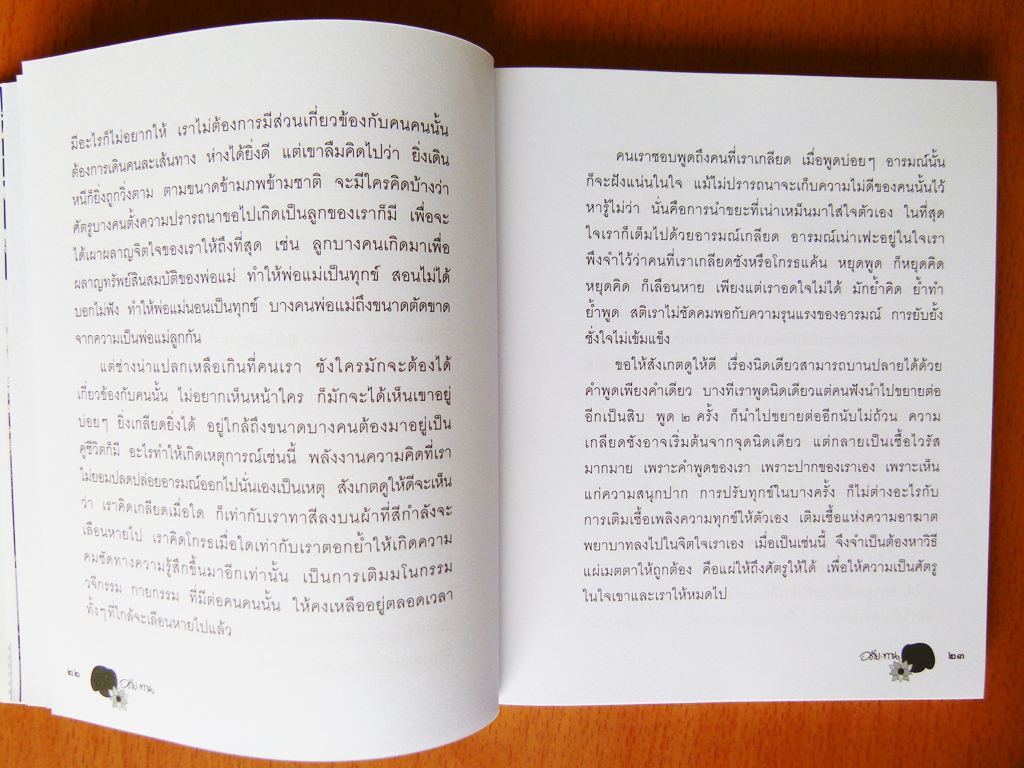 มีอะไรก็ไม่อยากให้ เราไม่ต้องการมีส่วนเกี่ยวข้องกับคนคนนั้น
ต้องการเดินคนละเส้นทาง ห่างได้ยิ่งดี แต่เขาลืมคิดไปว่า ยิ่งเดิน
หนีก็ยิ่งถูกวิ่งตาม ตามขนาดข้ามภพข้ามชาติ จะมีใครคิดบ้างว่า
ศัตรูบางคนตั้งความปรารถนาขอไปเกิดเป็นลูกของเราก็มี เพื่อจะ
ได้เผาผลาญจิตใจของเราให้ถึงที่สุด เช่น ลูกบางคนเกิดมาเพื่อ
ผลาญทรัพย์สินสมบัติของพ่อแม่ ทำให้พ่อแม่เป็นทุกข์ สอนไม่ได้
บอกไม่ฟัง ทำให้พ่อแม่นอนเป็นทุกข์ บางคนพ่อแม่ถึงขนาดตัดขาด
จากความเป็นพ่อแม่ลูกกัน
แต่ช่างน่าแปลกเหลือเกินที่คนเรา ชังใครมักจะต้องได้
เกี่ยวข้องกับคนนั้น ไม่อยากเห็นหน้าใคร ก็มักจะได้เห็นเขาอยู่
บ่อยๆ ยิ่งเกลียดยิ่งได้ อยู่ใกล้ถึงขนาดบางคนต้องมาอยู่เป็น
คู่ชีวิตก็มี อะไรทำให้เกิดเหตุการณ์เช่นนี้ พลังงานความคิดที่เรา
ไม่ยอมปลดปล่อยอารมณ์ออกไปนั่นเองเป็นเหตุ สังเกตดูให้ดีจะเห็น
ว่า เราคิดเกลียดเมื่อใด ก็เท่ากับเราทาสีลงบนผ้าที่สีกำลังจะ
เลือนหายไป เราคิดโกรธเมื่อใดเท่ากับเราตอกย้ำให้เกิดความ
คมชัดทางความรู้สึกขึ้นมาอีกเท่านั้น เป็นการเติมมโนกรรม
วจีกรรม กายกรรม ที่มีต่อคนคนนั้น ให้คงเหลืออยู่ตลอดเวลา
ทั้งๆที่ใกล้จะเลือนหายไปแล้ว
๒๒ อภัยทาน
คนเราชอบพูดถึงคนที่เราเกลียด เมื่อพูดบ่อยๆ อารมณ์นั้น
ก็จะฝังแน่นในใจ แม้ไม่ปรารถนาจะเก็บความไม่ดีของคนนั้นไว้
หารู้ไม่ว่า นั่นคือการนำขยะที่เน่าเหม็นมาใส่ใจตัวเอง ในที่สุด
ใจเราก็เต็มไปด้วยอารมณ์เกลียด อารมณ์เน่าเฟะอยู่ในใจเรา
พึงจำไว้ว่าคนที่เราเกลียดชังหรือโกรธแค้น หยุดพูด ก็หยุดคิด
หยุดคิด ก็เลือนหาย เพียงแต่เราอดใจไม่ได้ มักย้ำคิด ย้ำทำ
ย้ำพูด สติเราไม่ชัดคมพอกับความรุนแรงของอารมณ์ การยับยั้ง
ชั่งใจไม่เข้มแข็ง
ขอให้สังเกตดูให้ดี เรื่องนิดเดียวสามารถบานปลายได้ด้วย
คำพูดเพียงคำเดียว บางทีเราพูดนิดเดียวแต่คนฟังนำไปขยายต่อ
อีกเป็นสิบ พูด ๒ ครั้ง ก็นำไปขยายต่ออีกนับไม่ถ้วน ความ
เกลียดชังอาจเริ่มต้นจากจุดนิดเดียว แต่กลายเป็นเชื้อไวรัส
มากมาย เพราะคำพูดของเรา เพราะปากของเราเอง เพราะเห็น
แก่ความสนุกปาก การปรับทุกข์ในบางครั้ง ก็ไม่ต่างอะไรกับ
การเติมเชื้อเพลิงความทุกข์ให้ตัวเอง เติมเชื้อแห่งความอาฆาต
พยาบาทลงไปในจิตใจเราเอง เมื่อเป็นเช่นนี้ จึงจำเป็นต้องหาวิธี
แผ่เมตตาให้ถูกต้อง คือแผ่ให้ถึงศัตรูให้ได้ เพื่อให้ความเป็นศัตรู
ในใจเขาและเราให้หมดไป
อภัยทาน ๒๓